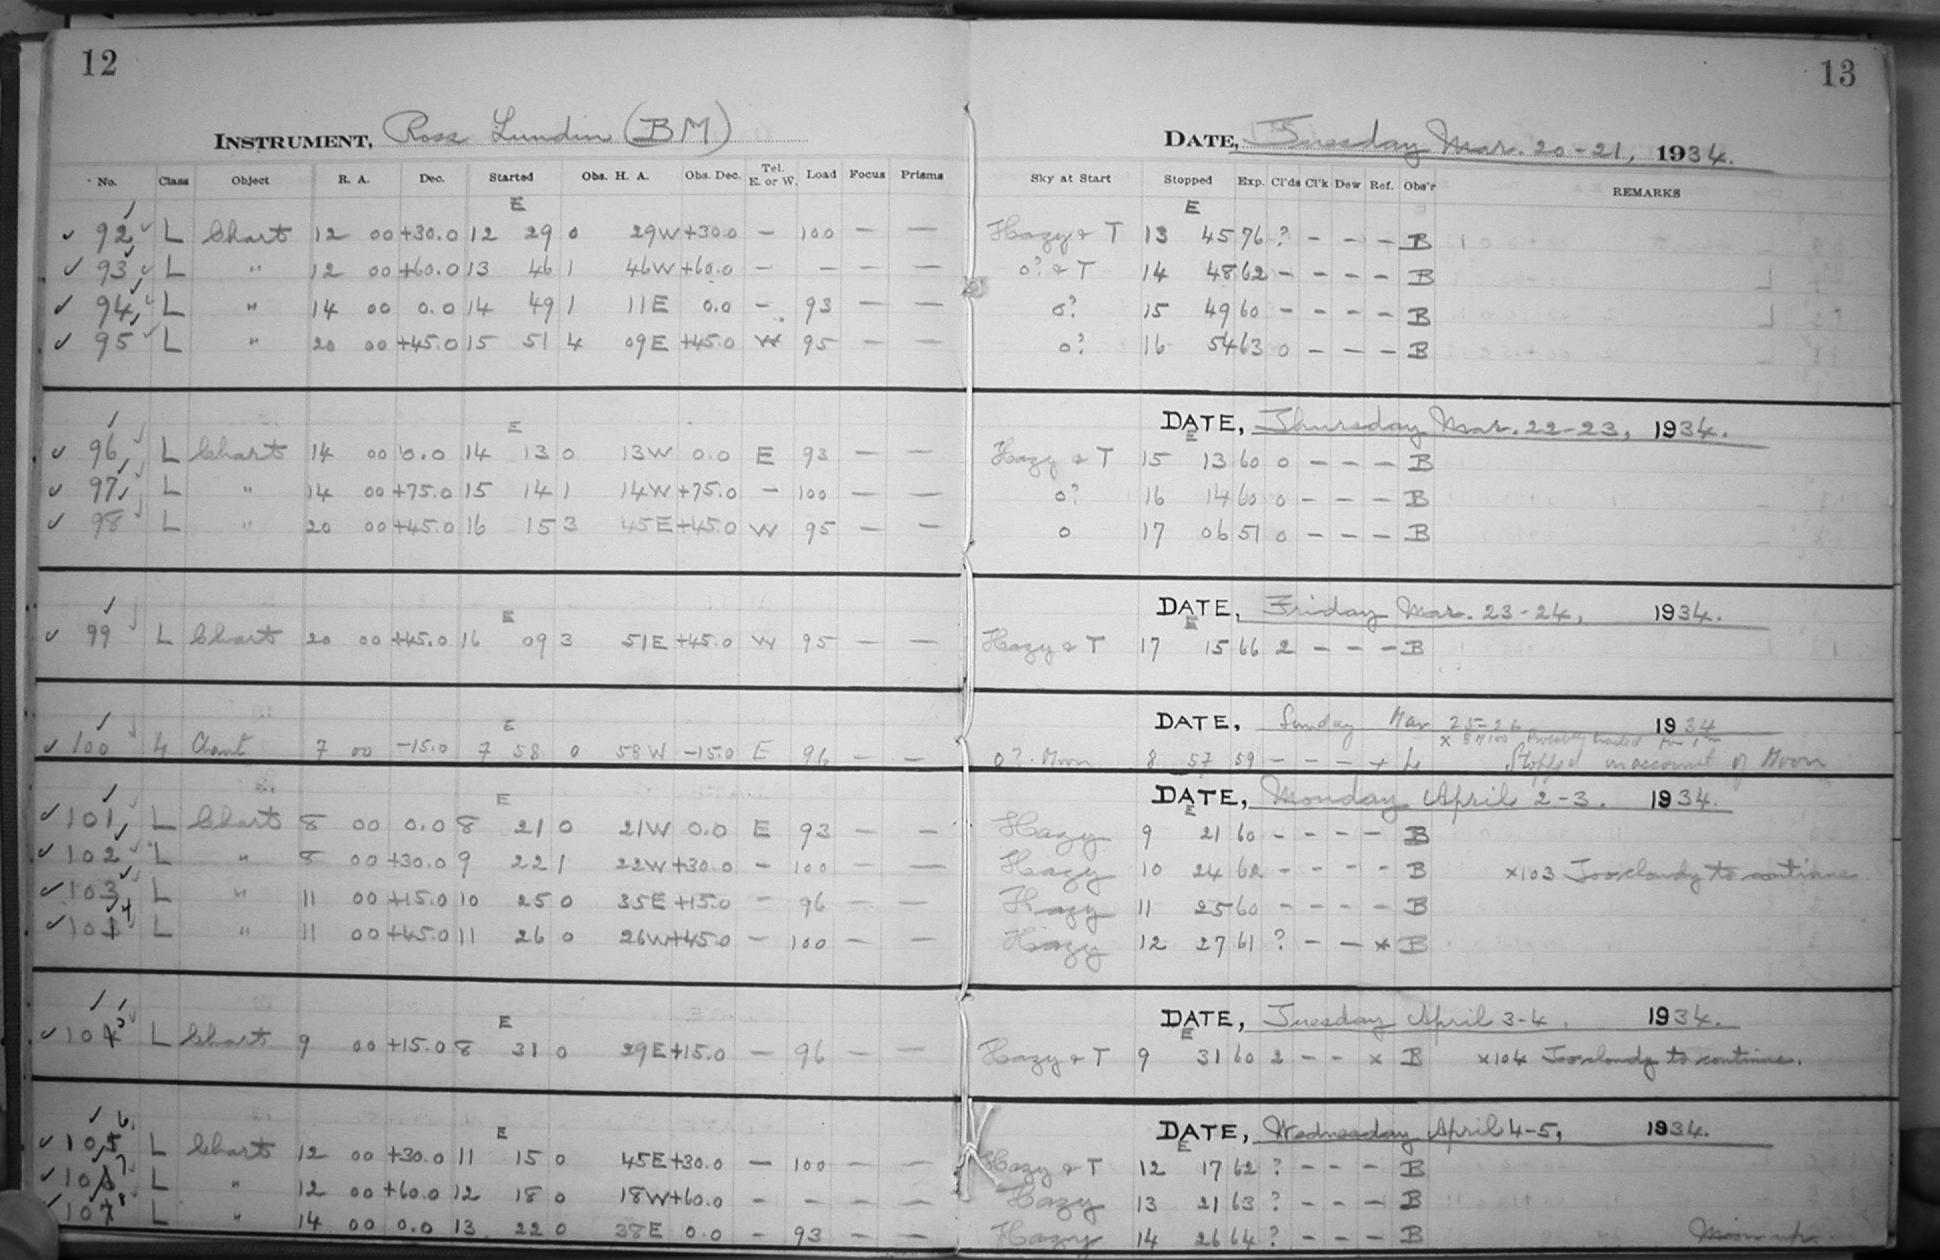 12
13
INSTRUMENT, Ross Lundin (BM) DATE, Tuesday Mar. 20-21, 1934.
No. Class Object R. A. Dec. Started Obs. H. A. Obs. Dec. Tel. E. or W. Load Focus Prisms Sky at Start Stopped Exp. Cl'ds Cl'k Dew Ref. Obs'r REMARKS
E E
✓ 92 L Chart 12 00 +30.0 12 29 0 29W +30.0 – 100 – – Hazy & T 13 45 76 ? – – – B
✓ 93 L " 12 00 +60.0 13 46 1 46W +60.0 – – – – 0? & T 14 48 62 – – – – B
✓ 94 L " 14 00 0.0 14 49 1 11E 0.0 – 93 – – 0? 15 49 60 – – – – B
✓ 95 L " 20 00 +45.0 15 51 4 09E +45.0 W 95 – – 0? 16 54 63 0 – – – B
DATE, Thursday Mar. 22-23, 1934.
E E
✓ 96 L Chart 14 00 0.0 14 13 0 13W 0.0 E 93 – – Hazy & T 15 13 60 0 – – – B
✓ 97 L " 14 00 +75.0 15 14 1 14W +75.0 – 100 – – 0? 16 14 60 0 – – – B
✓ 98 L " 20 00 +45.0 16 15 3 45E +45.0 W 95 – – 0 17 06 51 0 – – – B
DATE, Friday Mar. 23-24, 1934.
E E
✓ 99 L Chart 20 00 +45.0 16 09 3 51E +45.0 W 95 – – Hazy & T 17 15 66 2 – – – B
DATE, Sunday Mar 25-26 1934
E
✓ 100 L Chart 7 00 -15.0 7 58 0 58W -15.0 E 96 – – 0? Moon 8 57 59 – – – + L Stopped on account of Moon
DATE, Monday April 2-3. 1934.
E E
✓ 101 L Chart 8 00 0.0 8 21 0 21W 0.0 E 93 – – Hazy 9 21 60 – – – – B
✓ 102 L " 8 00 +30.0 9 22 1 22W +30.0 – 100 – – Hazy 10 24 62 – – – – B ×103 Too cloudy to continue
✓ 103 L " 11 00 +15.0 10 25 0 35E +15.0 – 96 – – Hazy 11 25 60 – – – – B
✓ 104 L " 11 00 +45.0 11 26 0 26W +45.0 – 100 – – Hazy 12 27 61 ? – – × B
DATE, Tuesday April 3-4, 1934.
E E
✓ 105 L Chart 9 00 +15.0 8 31 0 29E +15.0 – 96 – – Hazy & T 9 31 60 2 – – × B ×104 Too cloudy to continue.
DATE, Wednesday April 4-5, 1934.
E E
✓ 106 L Chart 12 00 +30.0 11 15 0 45E +30.0 – 100 – – Hazy & T 12 17 62 ? – – – B
✓ 107 L " 12 00 +60.0 12 18 0 18W +60.0 – – – – Hazy 13 21 63 ? – – – B
✓ 108 L " 14 00 0.0 13 22 0 38E 0.0 – 93 – – Hazy 14 26 64 ? – – – B Moon up.